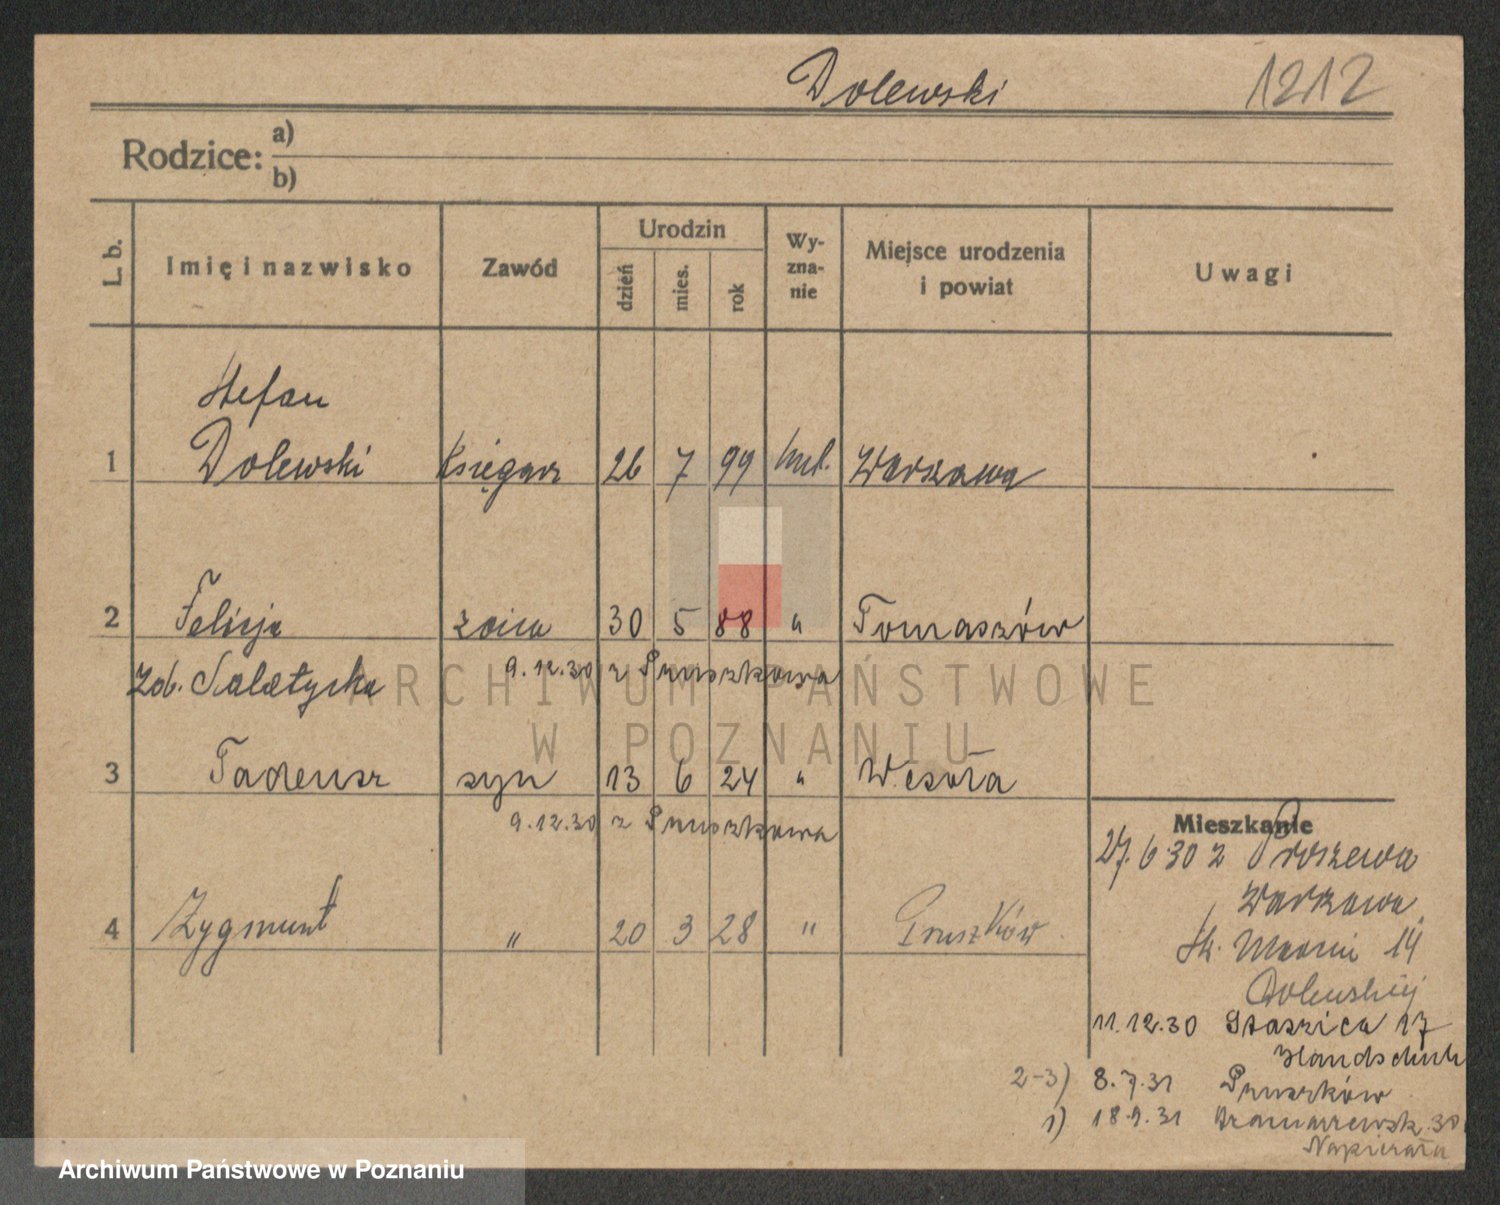 Dolewski 1212
Rodzice: a)
b)
L. b. Imię i nazwisko Zawód Urodzin dzień mies. rok Wy-zna-nie Miejsce urodzenia i powiat Uwagi
Stefan
1 Dolewski Księgarz 26 7 99 Warszawa
2 Felicja żona 30 5 88 " Tomaszów
zob. 9.12.30 z Pruszkowa
ARCHIWUM PAŃSTWOWE
W POZNANIU
3 Tadeusz syn 13 6 24 " Wesoła
9.12.30 z Pruszkowa
Mieszkanie
27.6.30 z
Warszawa
4 Zygmunt " 20 3 28 " Pruszków
14
11.12.30 Staszica 17
Handschuh
2-3) 8.7.31 Pruszków
1) 18.9.31 30
Napierała
Archiwum Państwowe w Poznaniu